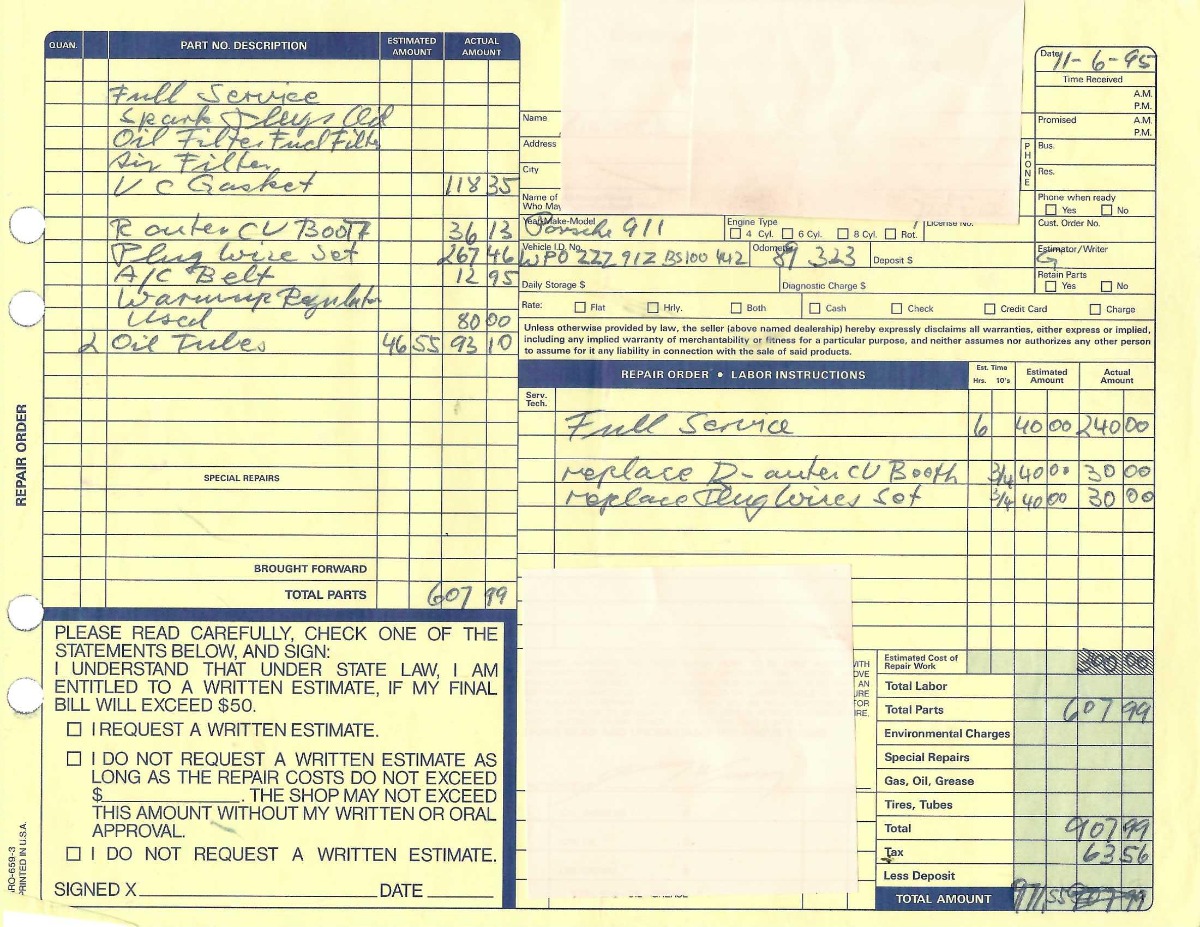 QUAN. PART NO. DESCRIPTION ESTIMATED AMOUNT ACTUAL AMOUNT
Full Service
Spark Plugs Oil
Oil Filter Fuel Filter
Air Filter
V C Gasket 118 35
R outer CV Booth 36 13
Plug Wire Set 267 46
A/C Belt 12 95
Warmup Regulator
Used 80 00
2 Oil Tubes 46 55 93 10
SPECIAL REPAIRS
BROUGHT FORWARD
TOTAL PARTS 607 99
REPAIR ORDER
PLEASE READ CAREFULLY, CHECK ONE OF THE
STATEMENTS BELOW, AND SIGN:
I UNDERSTAND THAT UNDER STATE LAW, I AM
ENTITLED TO A WRITTEN ESTIMATE, IF MY FINAL
BILL WILL EXCEED $50.
I REQUEST A WRITTEN ESTIMATE.
I DO NOT REQUEST A WRITTEN ESTIMATE AS
LONG AS THE REPAIR COSTS DO NOT EXCEED
$____________. THE SHOP MAY NOT EXCEED
THIS AMOUNT WITHOUT MY WRITTEN OR ORAL
APPROVAL.
I DO NOT REQUEST A WRITTEN ESTIMATE.
SIGNED X DATE
RO-659-3
PRINTED IN U.S.A.
Date 11-6-95
Time Received
A.M.
P.M.
Name Promised A.M.
P.M.
Address PHONE Bus.
City Res.
Name of
Who May
Phone when ready
Yes No
Year-Make-Model Porsche 911 Engine Type 4 Cyl. 6 Cyl. 8 Cyl. Rot. License No. Cust. Order No.
Vehicle I.D. No. WPO ZZZ 91Z BS100 442 Odometer 89 323 Deposit $ Estimator/Writer G
Daily Storage $ Diagnostic Charge $ Retain Parts
Yes No
Rate: Flat Hrly. Both Cash Check Credit Card Charge
Unless otherwise provided by law, the seller (above named dealership) hereby expressly disclaims all warranties, either express or implied,
including any implied warranty of merchantability or fitness for a particular purpose, and neither assumes nor authorizes any other person
to assume for it any liability in connection with the sale of said products.
REPAIR ORDER • LABOR INSTRUCTIONS Est. Time Hrs. 10's Estimated Amount Actual Amount
Serv. Tech.
Full Service 6 40 00 240 00
replace R-outer CV Booth 3/4 40 00 30 00
replace Plug Wires Set 3/4 40 00 30 00
Estimated Cost of
Repair Work 300 00
Total Labor
Total Parts 607 99
Environmental Charges
Special Repairs
Gas, Oil, Grease
Tires, Tubes
Total 907 99
Tax 63 56
Less Deposit
TOTAL AMOUNT 971 55